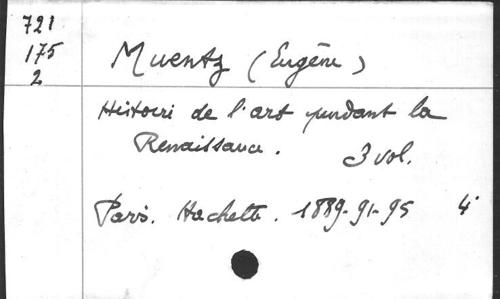 721
175
2
Muentz (Eugène)
Histoire de l'art pendant la
Renaissance. 3 vol.
Paris. Hachette. 1889-91-95 4°